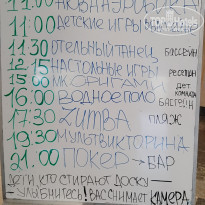 11:00 ДЕТСКИЕ ИГРЫ
11:30 ОТЕЛЬНЫЙ ТАНЕЦ БАССЕЙН
12:15 НАСТОЛЬНЫЕ ИГРЫ РЕСЕПШН
15:00 МК ОРИГАМИ ДЕТ. КОМНАТА
16:00 ВОДНОЕ ПОЛО БАССЕЙН
17:30 ZUMBA ПЛЯЖ
19:30 МУЛЬТВИКТОРИНА
21.00 ПОКЕР → БАР
ДЕТИ КТО СТИРАЮТ ДОСКУ —
УЛЫБНИТЕСЬ! ВАС СНИМАЕТ КАМЕРА